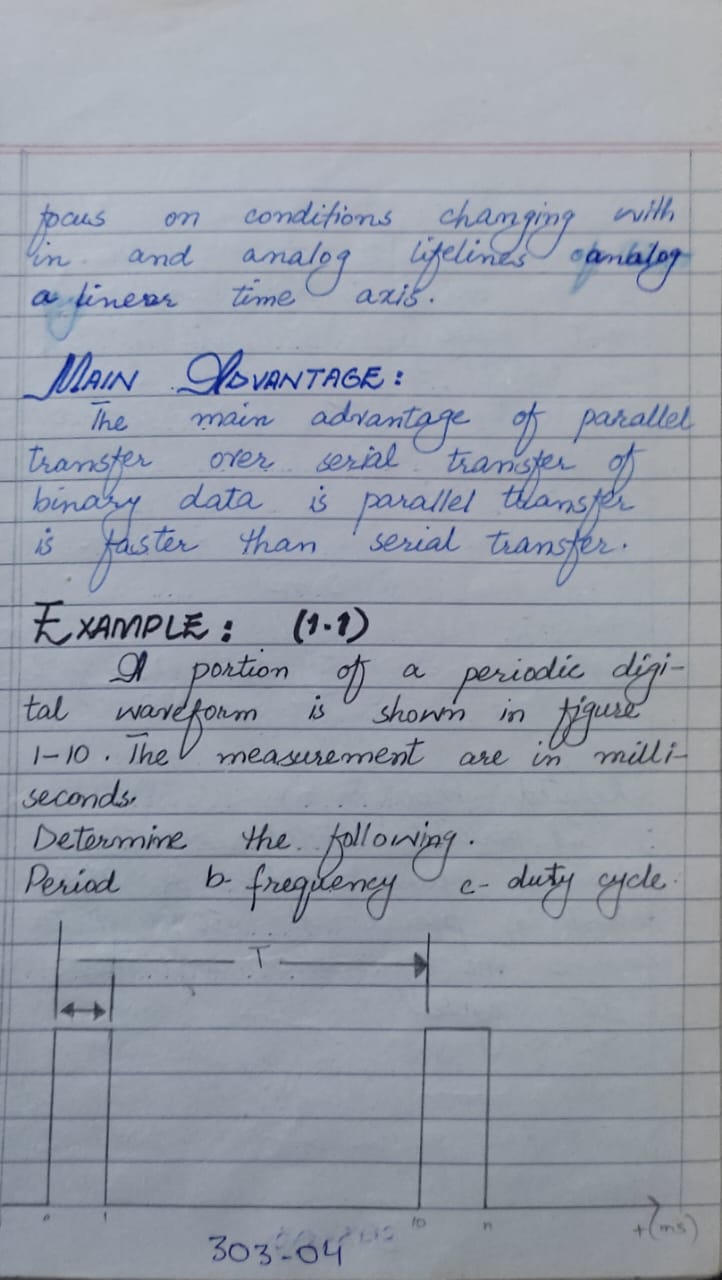 focus on conditions changing with
in and analog lifelines analog
a linear time axis.
MAIN ADVANTAGE:
The main advantage of parallel
transfer over serial transfer of
binary data is parallel transfer
is faster than serial transfer.
EXAMPLE: (1.1)
A portion of a periodic digi-
tal waveform is shown in figure
1-10. The measurement are in milli-
seconds.
Determine the following.
Period b- frequency c- duty cycle.
T
0 1 10 11 t(ms)
303-04